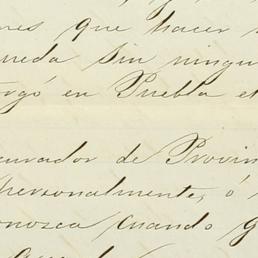 que hacer
queda sin ningu
en Puebla el
curador de Provin
personalmente, ó
conozca cuando g